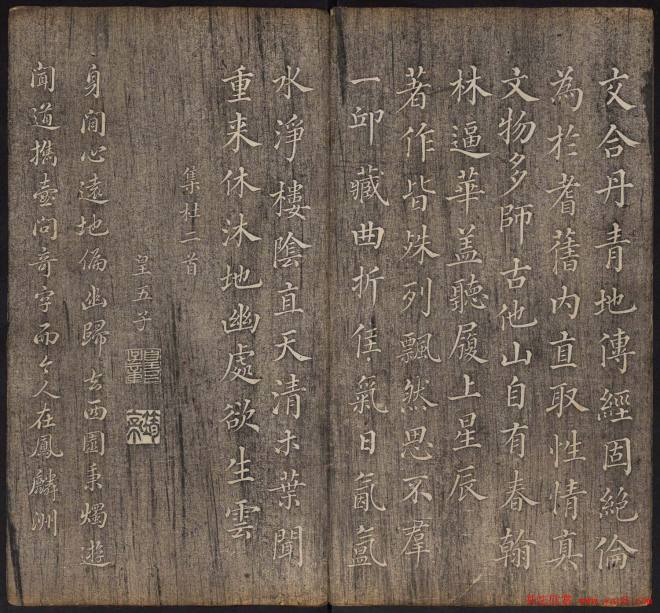 文合丹青地傳經固絕倫
為於耆舊內直取性情真
文物多師古他山自有春翰
林逼華盖聽履上星辰
著作皆殊列飄然思不羣
一邱藏曲折佳氣日氤氲
水淨樓陰直天清木葉聞
重来休沐地幽處欲生雲
集杜二首
皇五子
身閒心遠地偏幽歸去西園秉燭遊
聞道攜壺問奇字而今人在鳳麟洲